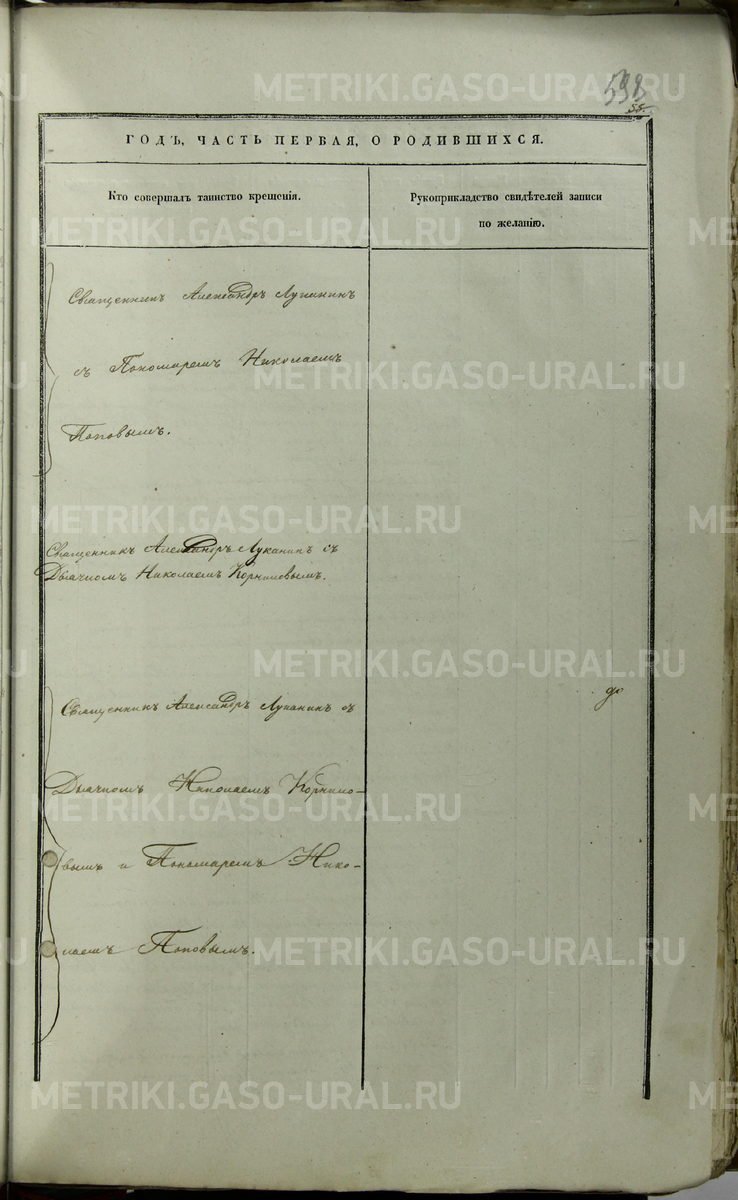 598
ГОДЪ, ЧАСТЬ ПЕРВАЯ, О РОДИВШИХСЯ.
Кто совершалъ таинство крещенія.
Рукоприкладство свидѣтелей записи
по желанію.
Священникъ Александръ Луканинъ
съ Пономаремъ Николаемъ
Поповымъ.
Священникъ Александръ Луканинъ съ
Дьячкомъ Николаемъ Корниловымъ.
Священникъ Александръ Луканинъ съ
Дьячкомъ Николаемъ Корнило-
вымъ и Пономаремъ Нико-
лаемъ Поповымъ.
METRIKI.GASO-URAL.RU
METRIKI.GASO-URAL.RU
METRIKI.GASO-URAL.RU
METRIKI.GASO-URAL.RU
METRIKI.GASO-URAL.RU
METRIKI.GASO-URAL.RU
METRIKI.GASO-URAL.RU
METRIKI.GASO-URAL.RU